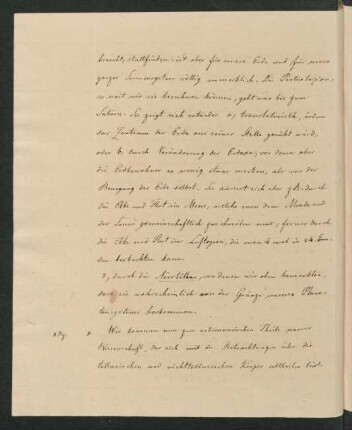 braucht, stattfinden und aber für unsere Erde und für unser
ganzes Sonnensystem völlig unmerklich. Die Perturbation,
so weit wir sie berechnen können, geht nur bis zum
Saturn. Sie zeigt sich entweder a) translatorisch, indem
das Zentrum der Erde aus seiner Stelle gerückt wird,
oder b. durch Veränderung der Erdaxe, von denen aber
die Erdbewohner so wenig etwas merken, als von der
Bewegung der Erde selbst. Sie äussert sich aber z.B. durch
die Ebbe und Flut im Meer, welche von dem Monde und
der Sonne gemeinschaftlich geschieht, ferner durch
die Ebbe und Flut im Luftozean, die man 4 mal in 24 Stun-
den beobachten kann.
3, durch die Aërolithen, von denen wir oben bemerkten,
dass sie wahrscheinlich von der Gränze unseres Plane-
tensystems herkommen.
Wir kommen nun zum astronomischen Theile unserer
Wissenschaft, der sich mit die Betrachtungen über die
tellurischen und nichttellurischen Körper abtheilen lässt.